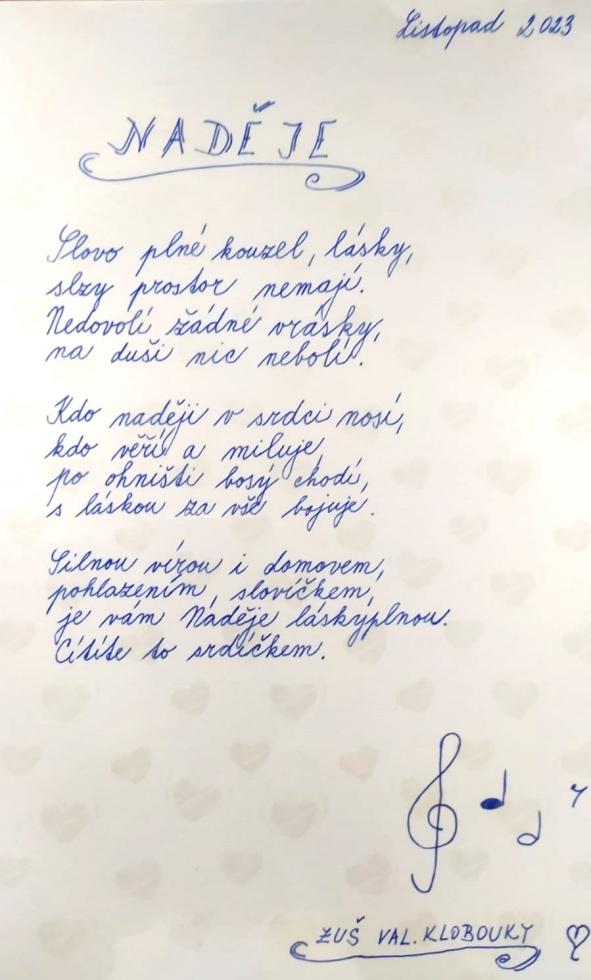 Listopad 2023
NADĚJE
Slovo plné kouzel, lásky,
slzy prostor nemají.
Nedovolí žádné vrásky,
na duši nic nebolí.
Kdo naději v srdci nosí,
kdo věří a miluje,
po ohništi bosý chodí,
s láskou za vše bojuje.
Silnou vírou i domovem,
pohlazením, slovíčkem,
je vám Naděje láskyplnou.
Cítíte to srdíčkem.
ZUŠ VAL. KLOBOUKY